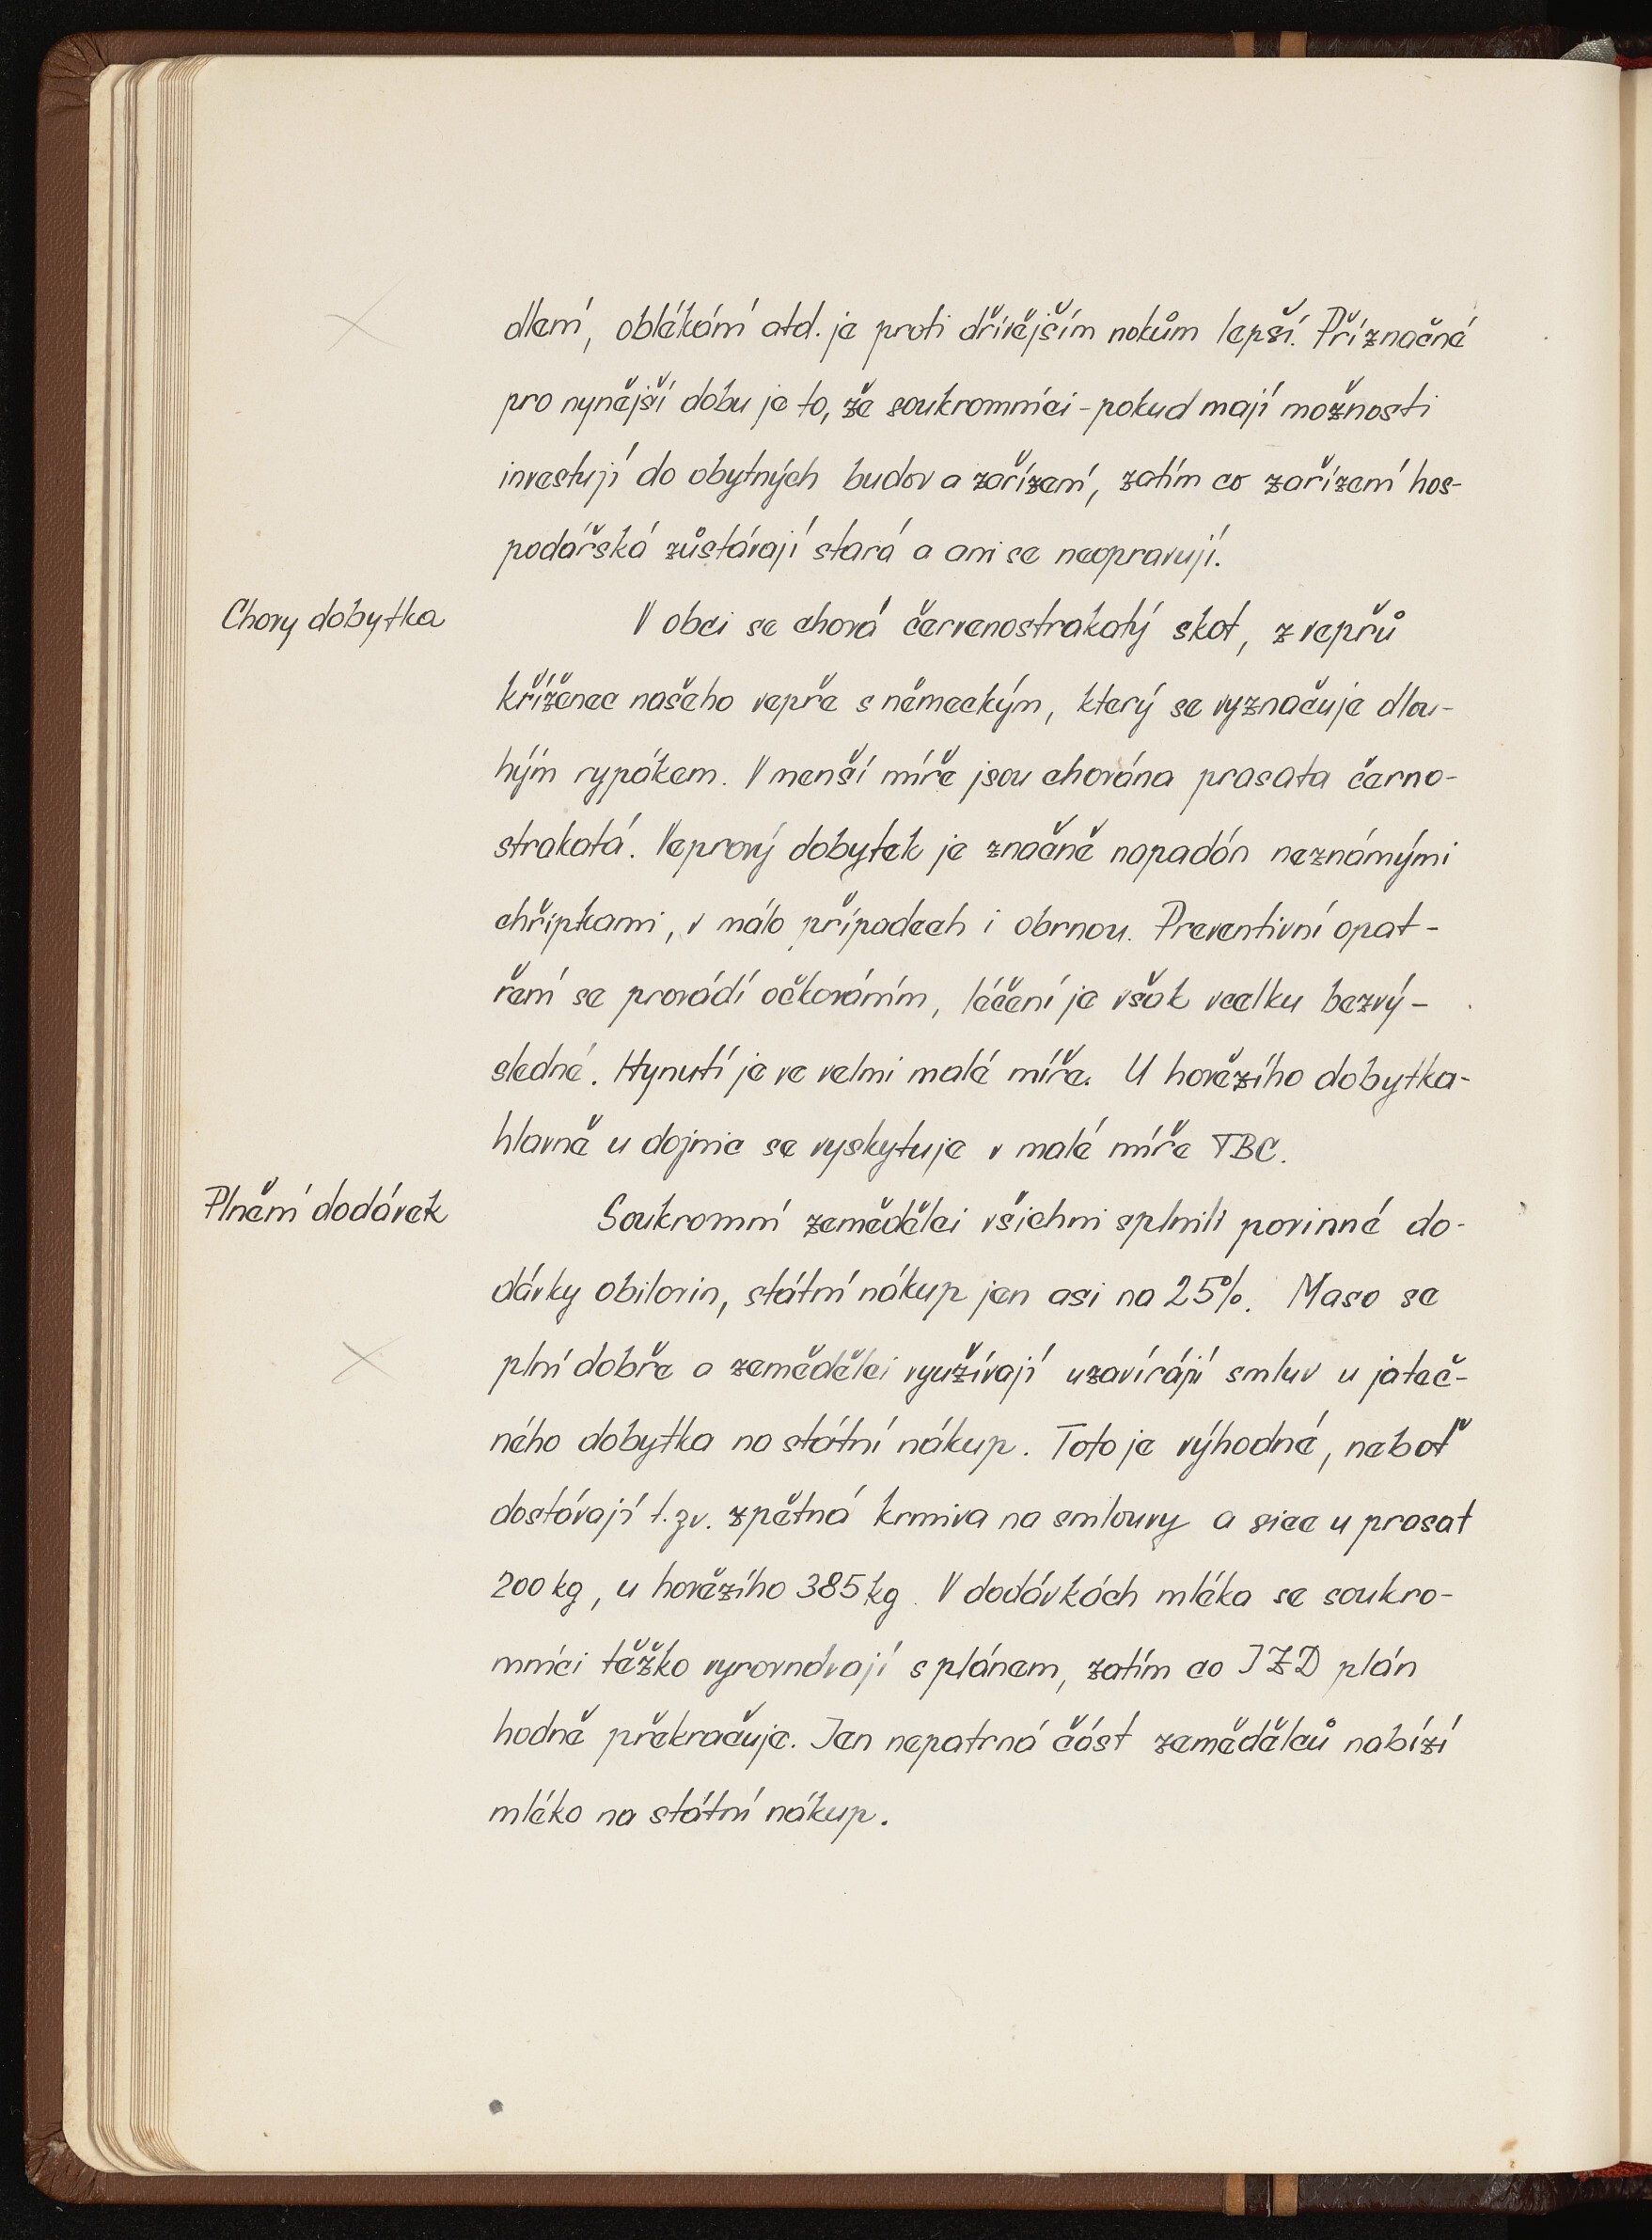 dlení, oblékání atd. je proti dřívějším rokům lepší. Příznačné
pro nynější dobu je to, že soukromníci - pokud mají možnosti
investují do obytných budov a zařízení, zatím co zařízení hos-
podářská zůstávají stará a ani se neopravují.
Chovy dobytka
V obci se chová červenostrakatý skot, z vepřů
kříženec našeho vepře s německým, který se vyznačuje dlou-
hým rypákem. V menší míře jsou chována prasata černo-
strakatá. Vepřový dobytek je značně napadán neznámými
chřipkami, v málo případech i obrnou. Preventivní opat-
ření se provádí očkováním, léčení je však vcelku bezvý-
sledné. Hynutí je ve velmi malé míře. U hovězího dobytka-
hlavně u dojnic se vyskytuje v malé míře TBC.
Plnění dodávek
Soukromní zemědělci všichni splnili povinné do-
dávky obilovin, státní nákup jen asi na 25%. Maso se
plní dobře a zemědělci využívají uzavírájí smluv u jateč-
ného dobytka na státní nákup. Toto je výhodné, neboť
dostávají t.zv. zpětná krmiva na smlouvy a sice u prasat
200 kg, u hovězího 385 kg. V dodávkách mléka se soukro-
mníci těžko vyrovnávají s plánem, zatím co JZD plán
hodně překračuje. Jen nepatrná část zemědělců nabízí
mléko na státní nákup.